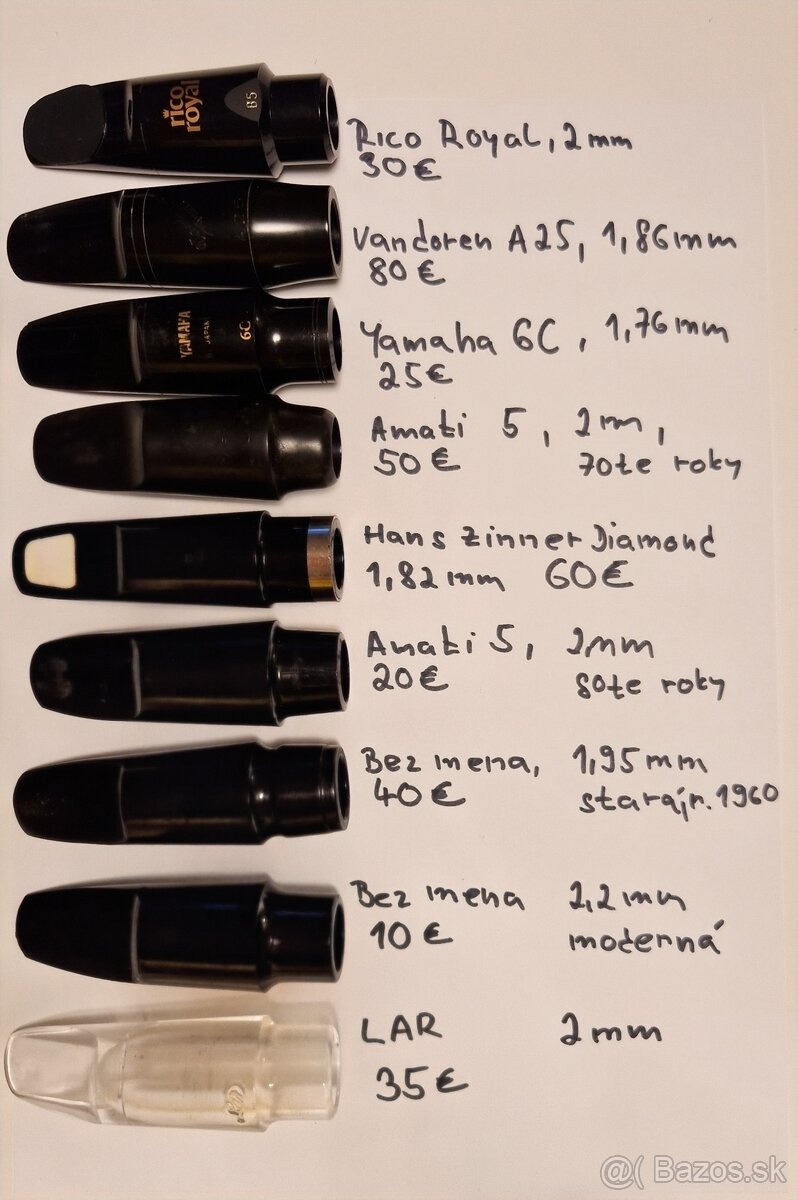 rico
royal
B5
Rico Royal, 2mm
30€
Vandoren A25, 1,86mm
80€
YAMAHA
JAPAN
6C
Yamaha 6C, 1,76mm
25€
Amati 5, 2m,
50€ 70te roky
Hans Zinner Diamond
1,82mm 60€
Amati 5, 2mm
20€ 80te roky
Bez mena, 1,95mm
40€ stará,r.1960
Bez mena 2,2mm
10€ moderná
LAR 2mm
35€
@( Bazos.sk